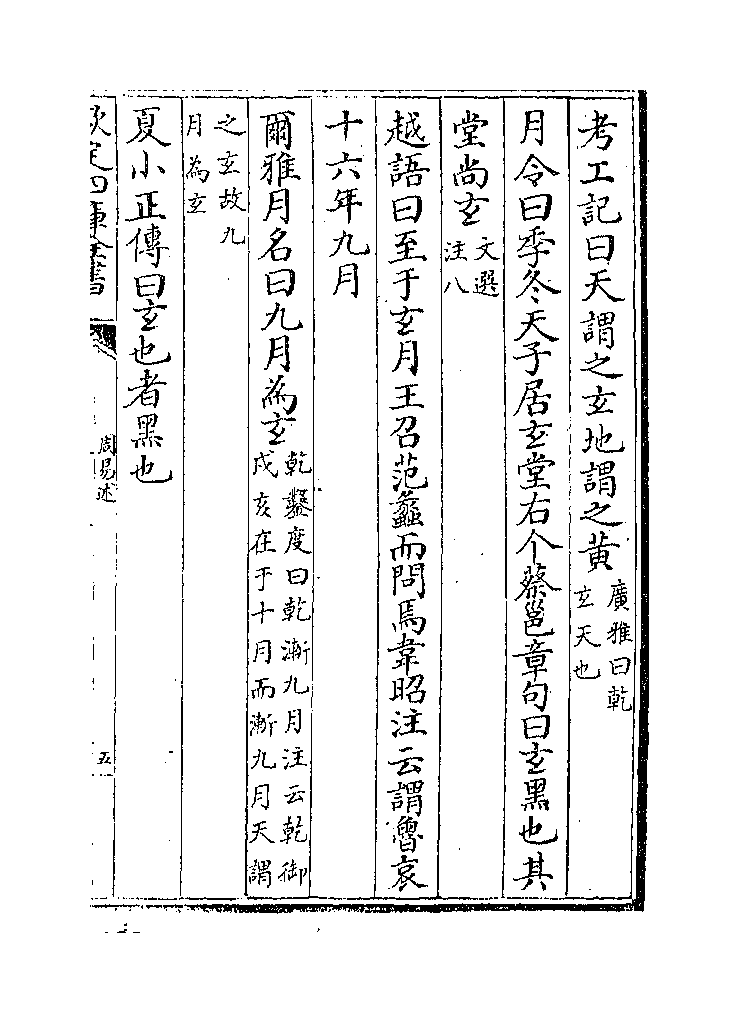 考工記曰天謂之玄地謂之黄廣雅曰乾
玄天也
月令曰季冬天子居玄堂右个蔡邕章句曰玄黑也其
堂尚玄文選
注八
越語曰至于玄月王召范蠡而問焉韋昭注云謂魯哀
十六年九月
爾雅月名曰九月為玄乾鑿度曰乾漸九月注云乾御
戌亥在于十月而漸九月天謂
之玄故九
月為玄
夏小正傳曰玄也者黑也
欽定四庫全書
周易述
五